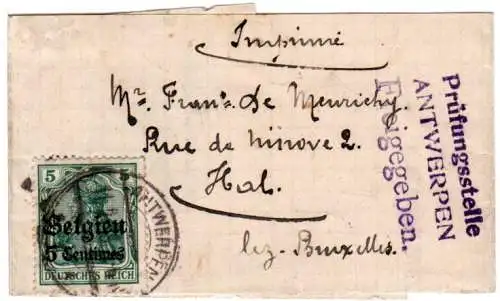 Imprimé
Mr. Frans De Meurichy.
Rue de ninove 2.
Hal.
lez-Bruxelles.
Prüfungsstelle
ANTWERPEN
Freigegeben.
5
Belgien
5 Centimes
DEUTSCHES REICH
ANTWERPEN